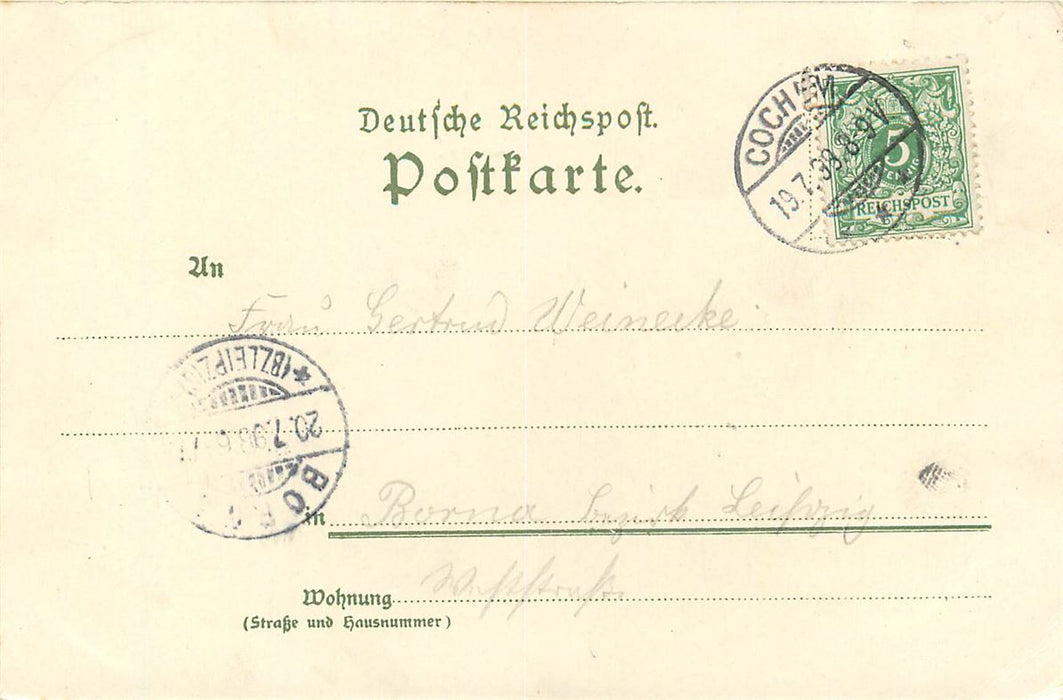 Deutsche Reichspost.
Postkarte.
COCHEM
19.7.98.8-9V
5
PFENNIG
REICHSPOST
An
Frau Gertrud Weinecke
*(BZ.LEIPZIG)
20.7.98.6-7
BORNA
in Borna bezirk Leipzig
Wohnung Weststraße
(Straße und Hausnummer)